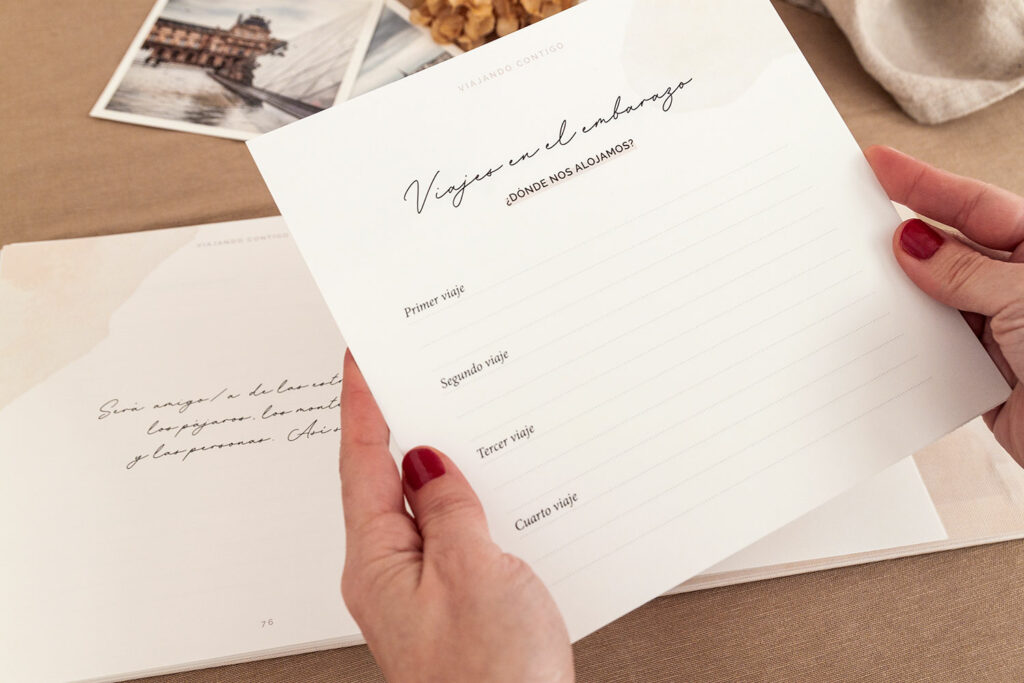 VIAJANDO CONTIGO
Viajes en el embarazo
¿DÓNDE NOS ALOJAMOS?
Primer viaje
Segundo viaje
Tercer viaje
Cuarto viaje
VIAJANDO CONTIGO
Será amigo/a de las
los pájaros, los
y las personas. Así
76